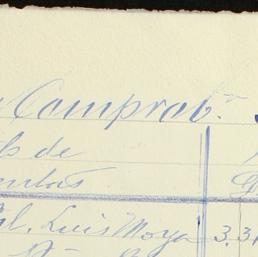 Comprob.
ls de
entas
al. Luis Moya 3.3